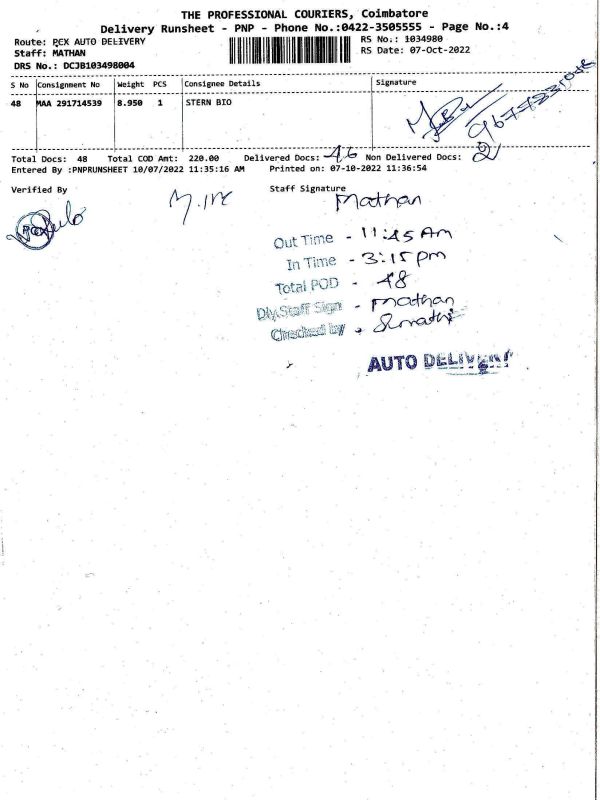 THE PROFESSIONAL COURIERS, Coimbatore
Delivery Runsheet - PNP - Phone No.:0422-3505555 - Page No.:4
Route: PCX AUTO DELIVERY
RS No.: 1034980
Staff: MATHAN
RS Date: 07-Oct-2022
DRS No.: DCJB103498004
S No Consignment No Weight PCS Consignee Details Signature
48 MAA 291714539 8.950 1 STERN BIO
Total Docs: 48 Total COD Amt: 220.00 Delivered Docs: 46 Non Delivered Docs: 2
Entered By :PNPRUNSHEET 10/07/2022 11:35:16 AM Printed on: 07-10-2022 11:36:54
Verified By Staff Signature
Mathan
PCX
Out Time - 11:45 Am
In Time - 3:15 pm
Total POD - 48
Dly.Staff Sign - Mathan
Checked by -
AUTO DELIVERY